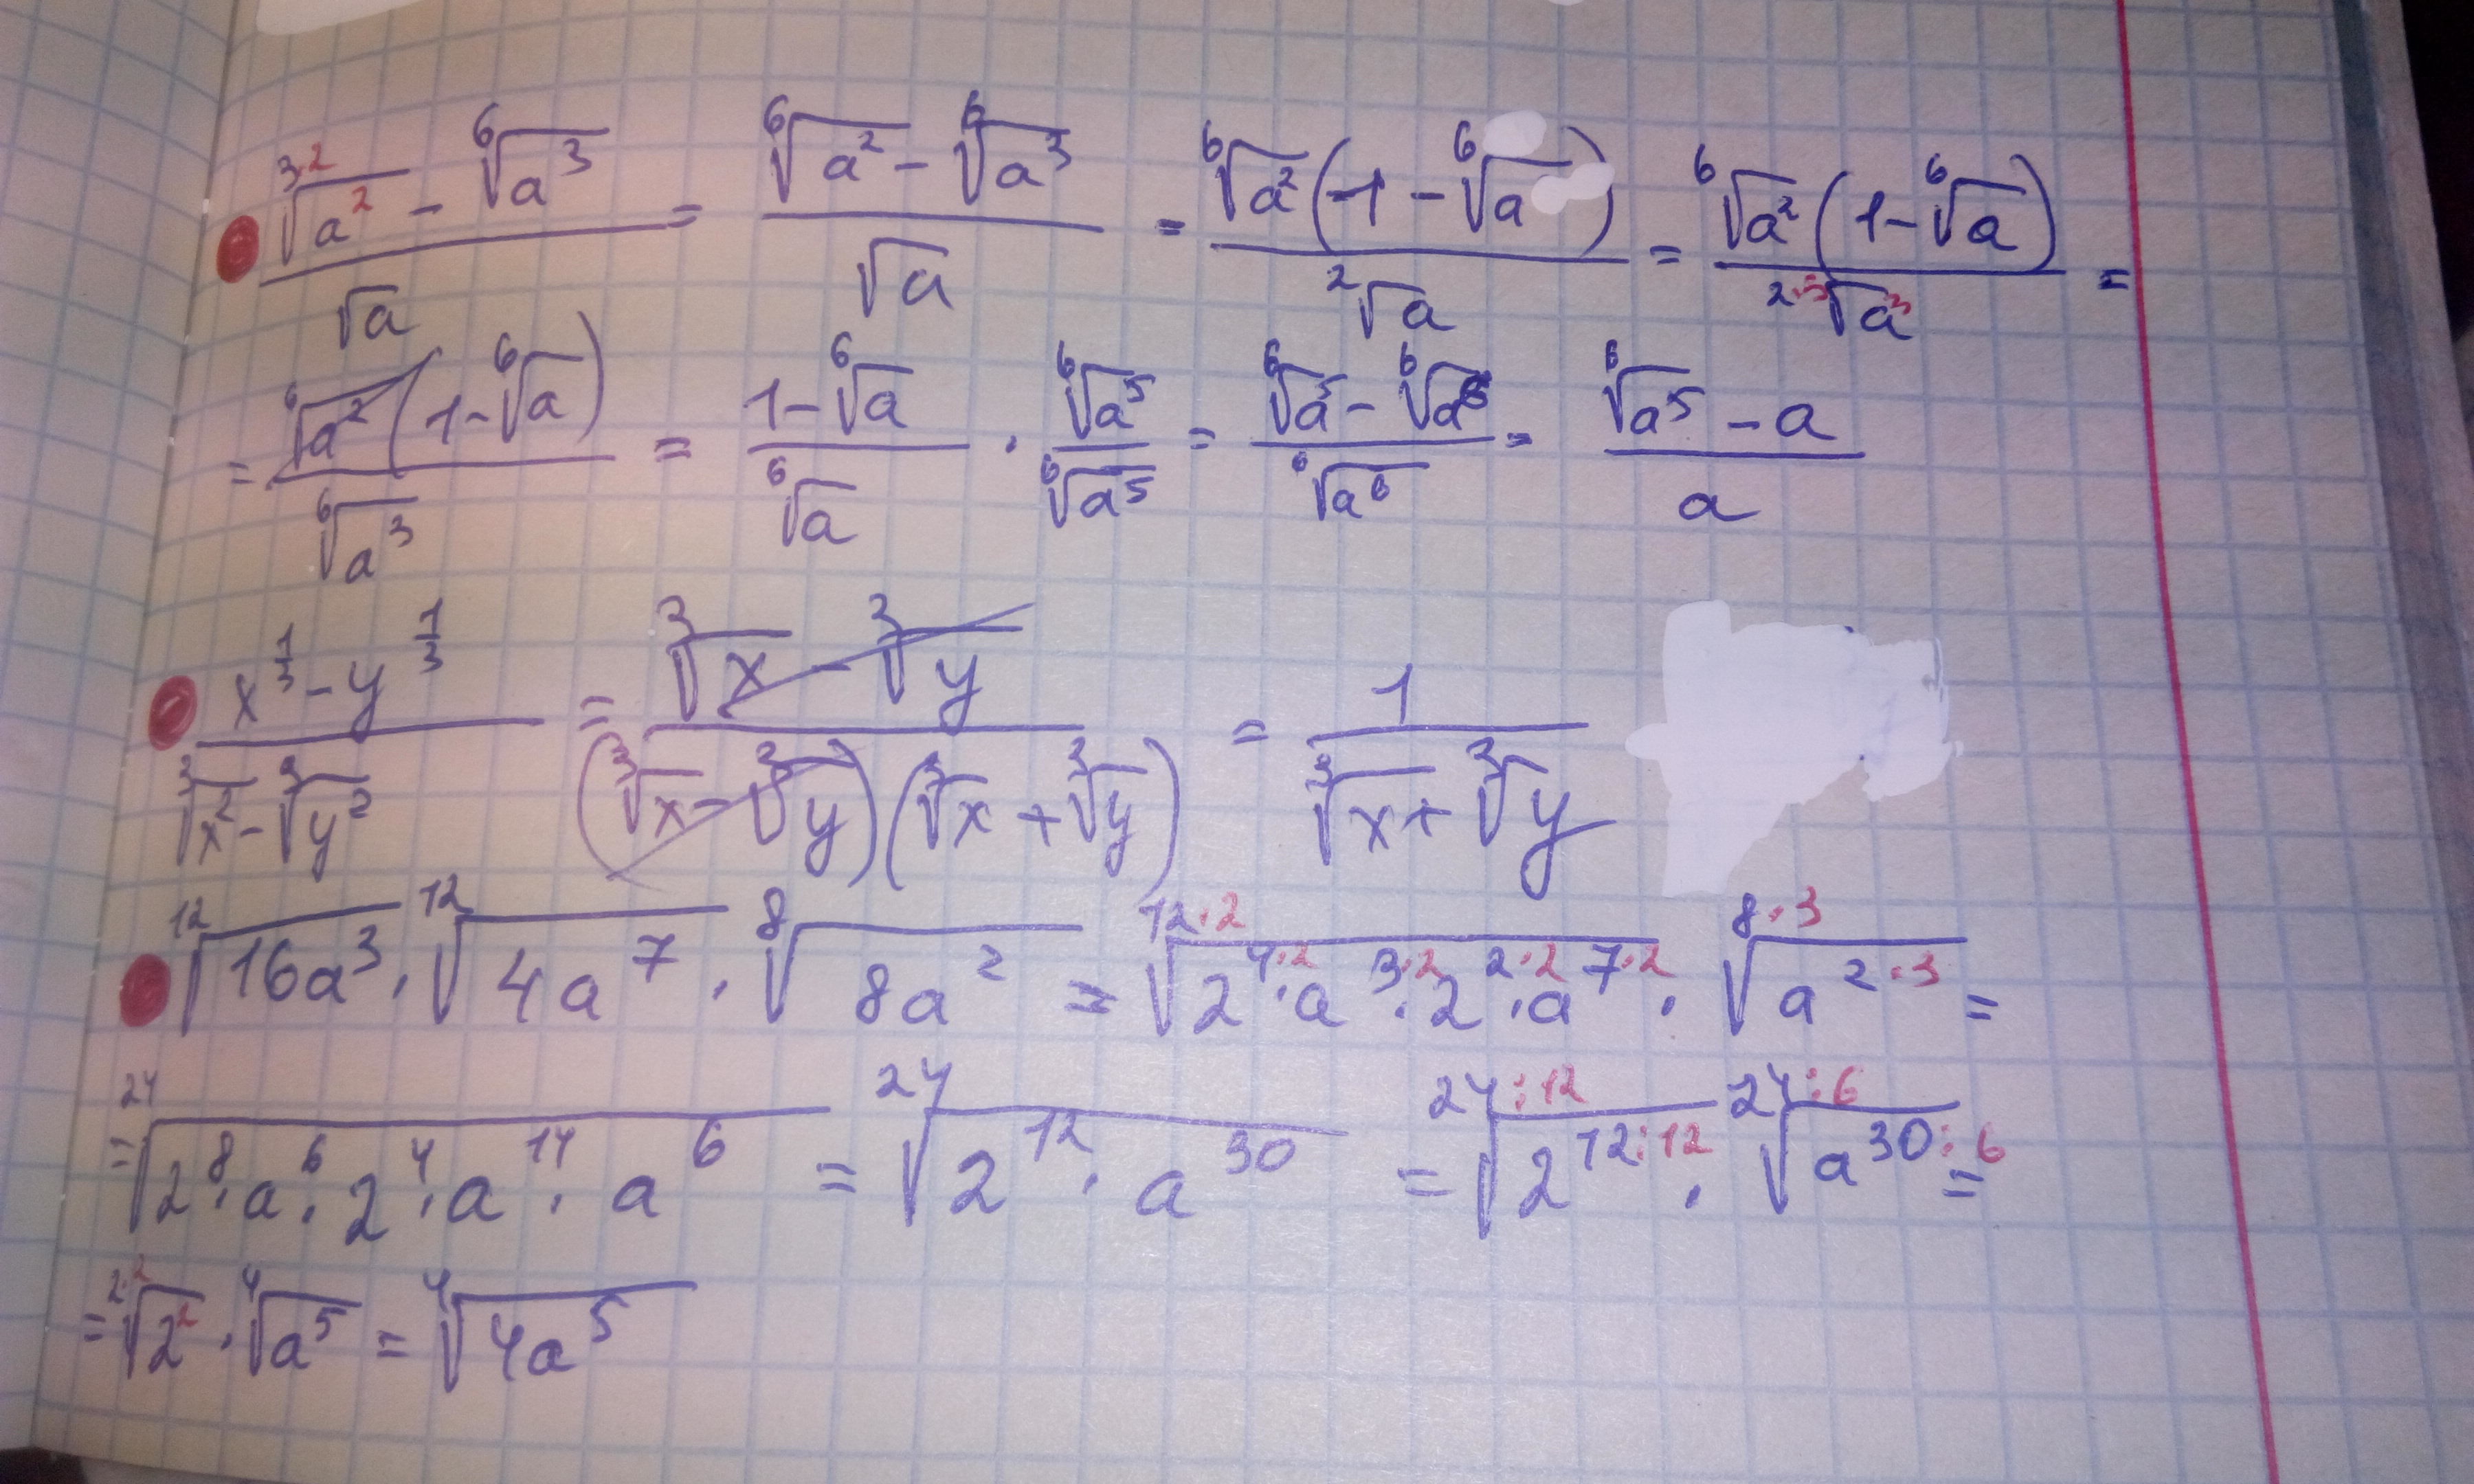 \frac{\sqrt[3·2]{a^2} - \sqrt[6]{a^3}}{\sqrt{a}} = \frac{\sqrt[6]{a^2} - \sqrt[6]{a^3}}{\sqrt{a}} = \frac{\sqrt[6]{a^2}(1 - \sqrt[6]{a})}{\sqrt[2]{a}} = \frac{\sqrt[6]{a^2}(1 - \sqrt[6]{a})}{\sqrt[2·3]{a^3}} =
= \frac{\sqrt[6]{a^2}(1 - \sqrt[6]{a})}{\sqrt[6]{a^3}} = \frac{1 - \sqrt[6]{a}}{\sqrt[6]{a}} · \frac{\sqrt[6]{a^5}}{\sqrt[6]{a^5}} = \frac{\sqrt[6]{a^5} - \sqrt[6]{a^6}}{\sqrt[6]{a^6}} = \frac{\sqrt[6]{a^5} - a}{a}
\frac{x^{\frac{1}{3}} - y^{\frac{1}{3}}}{\sqrt[3]{x^2} - \sqrt[3]{y^2}} = \frac{\sqrt[3]{x} - \sqrt[3]{y}}{(\sqrt[3]{x} - \sqrt[3]{y})(\sqrt[3]{x} + \sqrt[3]{y})} = \frac{1}{\sqrt[3]{x} + \sqrt[3]{y}}
\sqrt[12]{16a^3} · \sqrt[12]{4a^7} · \sqrt[8]{8a^2} = \sqrt[12·2]{2^{4·2} · a^{3·2} · 2^{2·2} · a^{7·2}} · \sqrt[8·3]{a^{2·3}} =
= \sqrt[24]{2^8 · a^6 · 2^4 · a^{14} · a^6} = \sqrt[24]{2^{12} · a^{30}} = \sqrt[24:12]{2^{12:12}} · \sqrt[24:6]{a^{30:6}} =
= \sqrt[2·2]{2^2} · \sqrt[4]{a^5} = \sqrt[4]{4a^5}